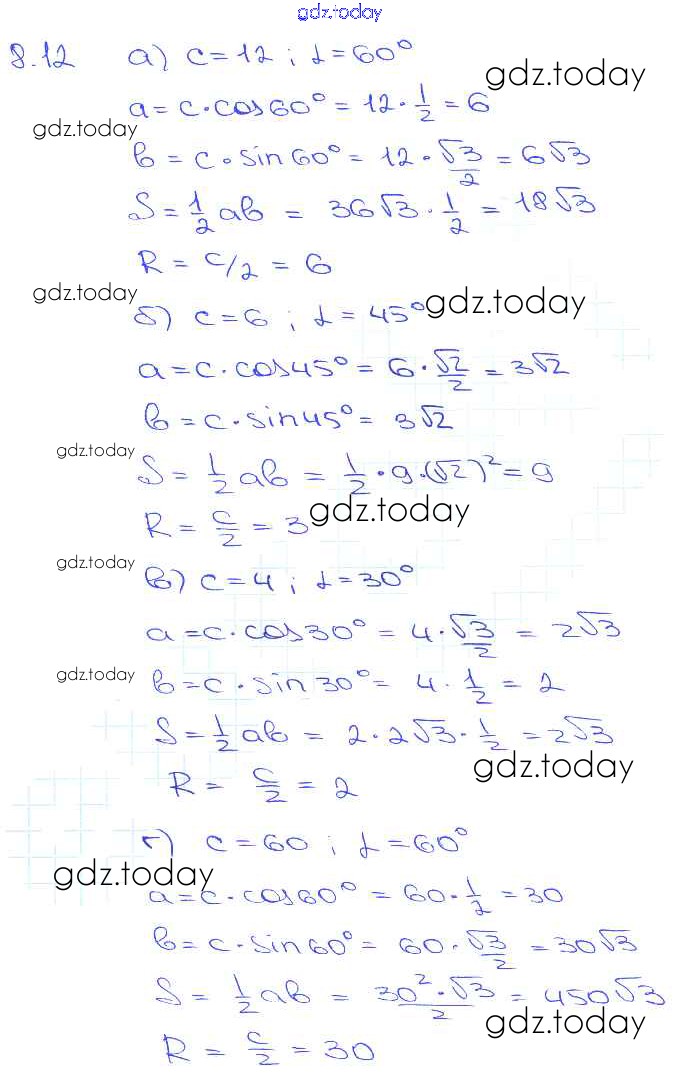 gdz.today
8.12 а) c=12 ; α=60°
gdz.today
a=c·cos60°=12·1/2=6
gdz.today
b=c·sin60°=12·√3/2=6√3
S=1/2ab=36√3·1/2=18√3
R=c/2=6
gdz.today
gdz.today
б) c=6 ; α=45°
a=c·cos45°=6·√2/2=3√2
b=c·sin45°=3√2
gdz.today
S=1/2ab=1/2·9·(√2)²=9
gdz.today
R=c/2=3
gdz.today
в) c=4 ; α=30°
a=c·cos30°=4·√3/2=2√3
gdz.today
b=c·sin30°=4·1/2=2
S=1/2ab=2·2√3·1/2=2√3
gdz.today
R=c/2=2
г) c=60 ; α=60°
gdz.today
a=c·cos60°=60·1/2=30
b=c·sin60°=60·√3/2=30√3
S=1/2ab=30²·√3/2=450√3
gdz.today
R=c/2=30